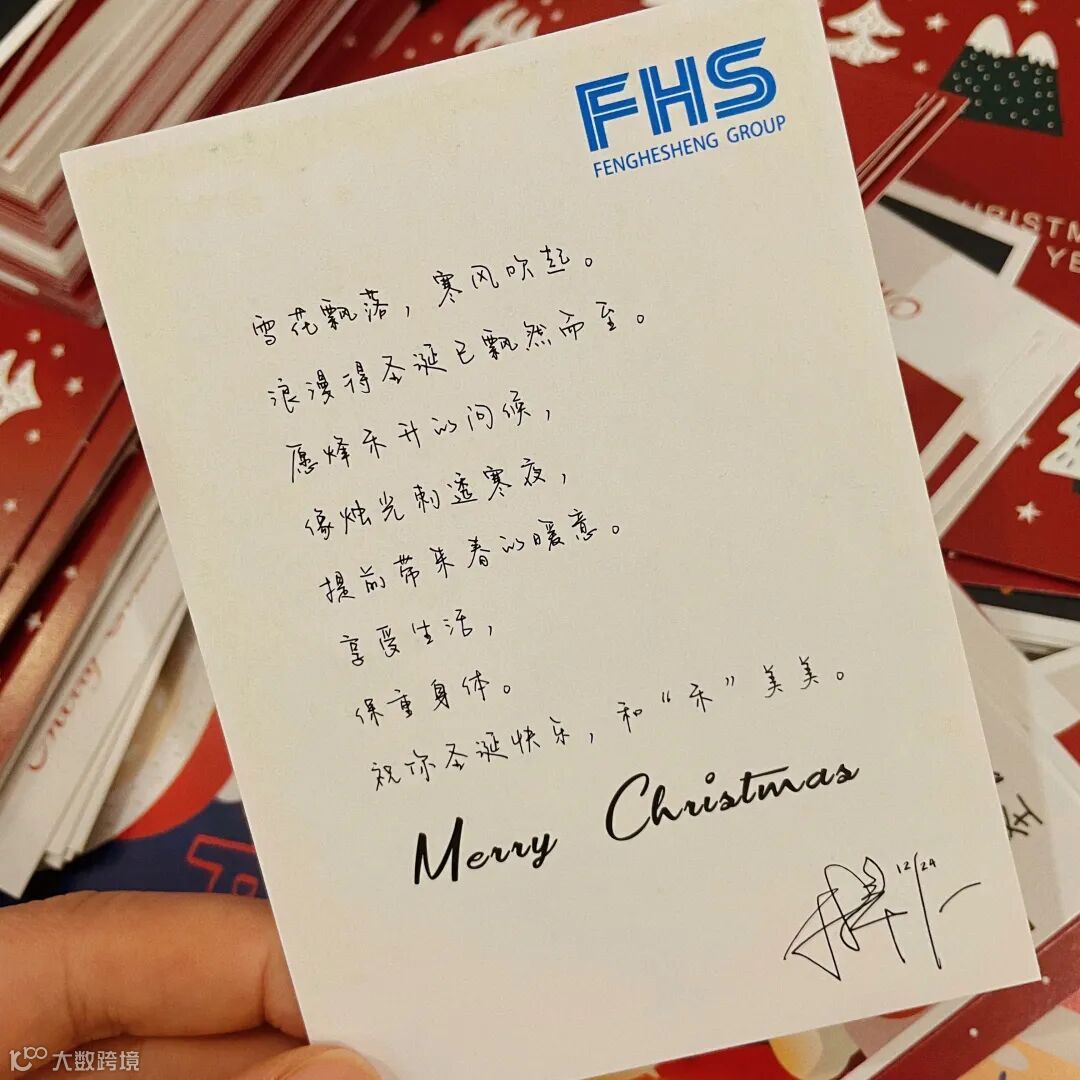 FHS
FENGHESHENG GROUP
雪花飘落，寒风吹起。
浪漫得圣诞已飘然而至。
愿烽禾升的问候，
像烛光刺透寒夜，
提前带来春的暖意。
享受生活，
保重身体。
祝你圣诞快乐，和“禾”美美。
Merry Christmas
12/24
CHRISTM
YE
Merry
大数跨境